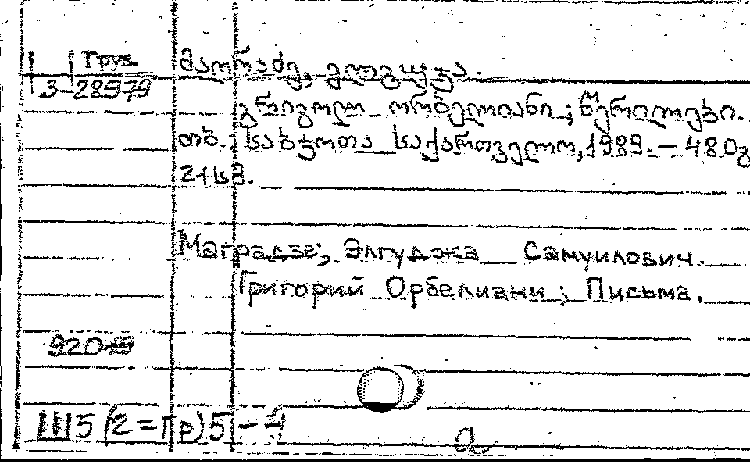 Груз.
3-28979
მაღრაძე, ელგუჯა.
გრიგოლ ორბელიანი; წერილები.
თბ. საბჭოთა საქართველო, 1989. - 480გ
21სმ.
Маградзе, Элгуджа Самуилович.
Григорий Орбелиани; Письма.
920
Ш5(2=Гр)5-4